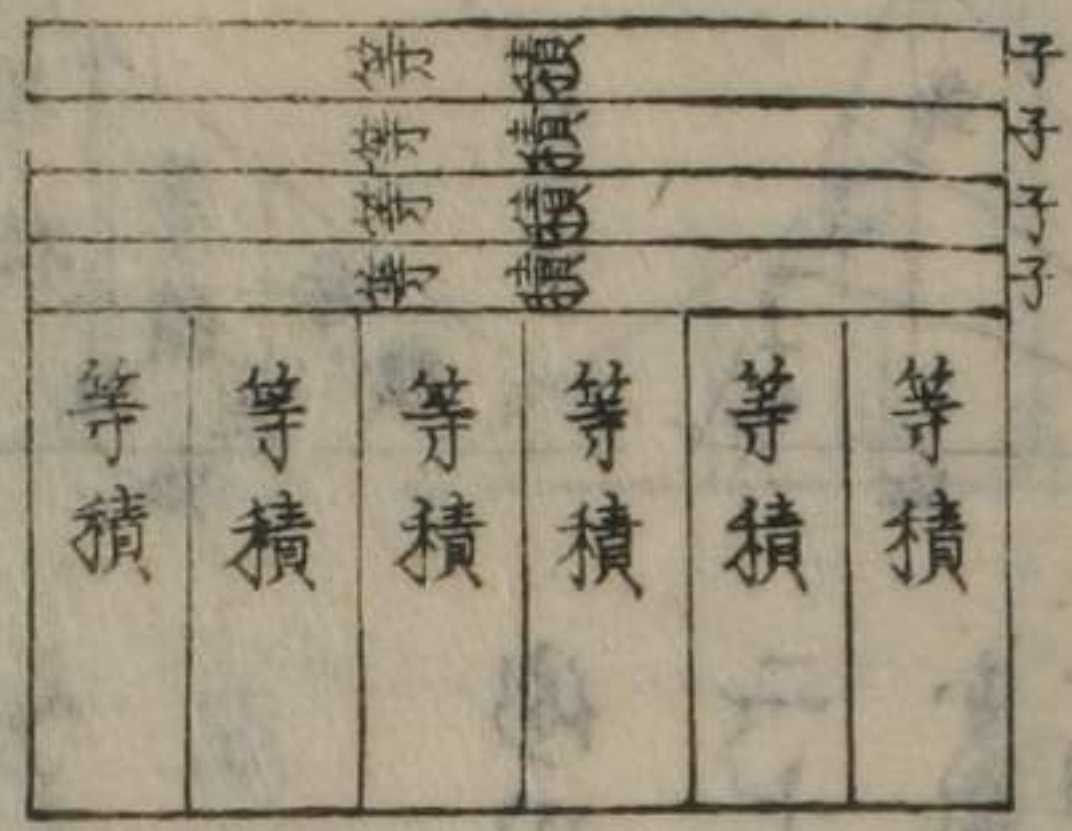 等積 子
等積 子
等積 子
等積 子
等積
等積
等積
等積
等積
等積